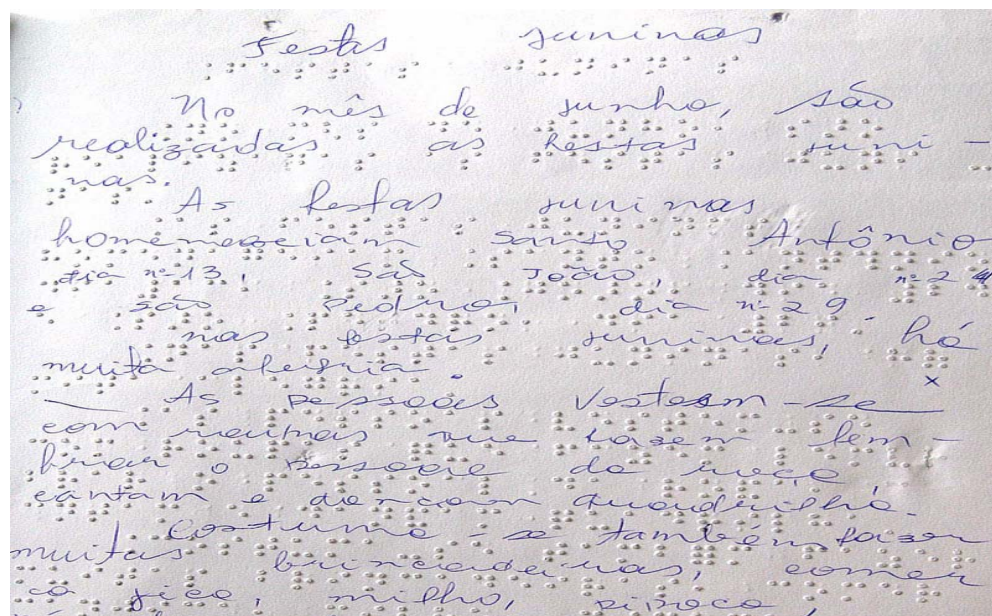 Festas juninas
No mês de junho, são
realizadas as festas juni-
nas.
As festas juninas
homenageiam santo Antônio
dia nº 13, São João, dia nº 24
e são Pedro, dia nº 29.
nas festas juninas, há
muita alegria.
As pessoas vestem-se
com roupas que fazem lem-
brar o pessoal da roça,
cantam e dançam quadrilha.
Costuma-se também fazer
muitas brincadeiras, comer
milho, pipoca,